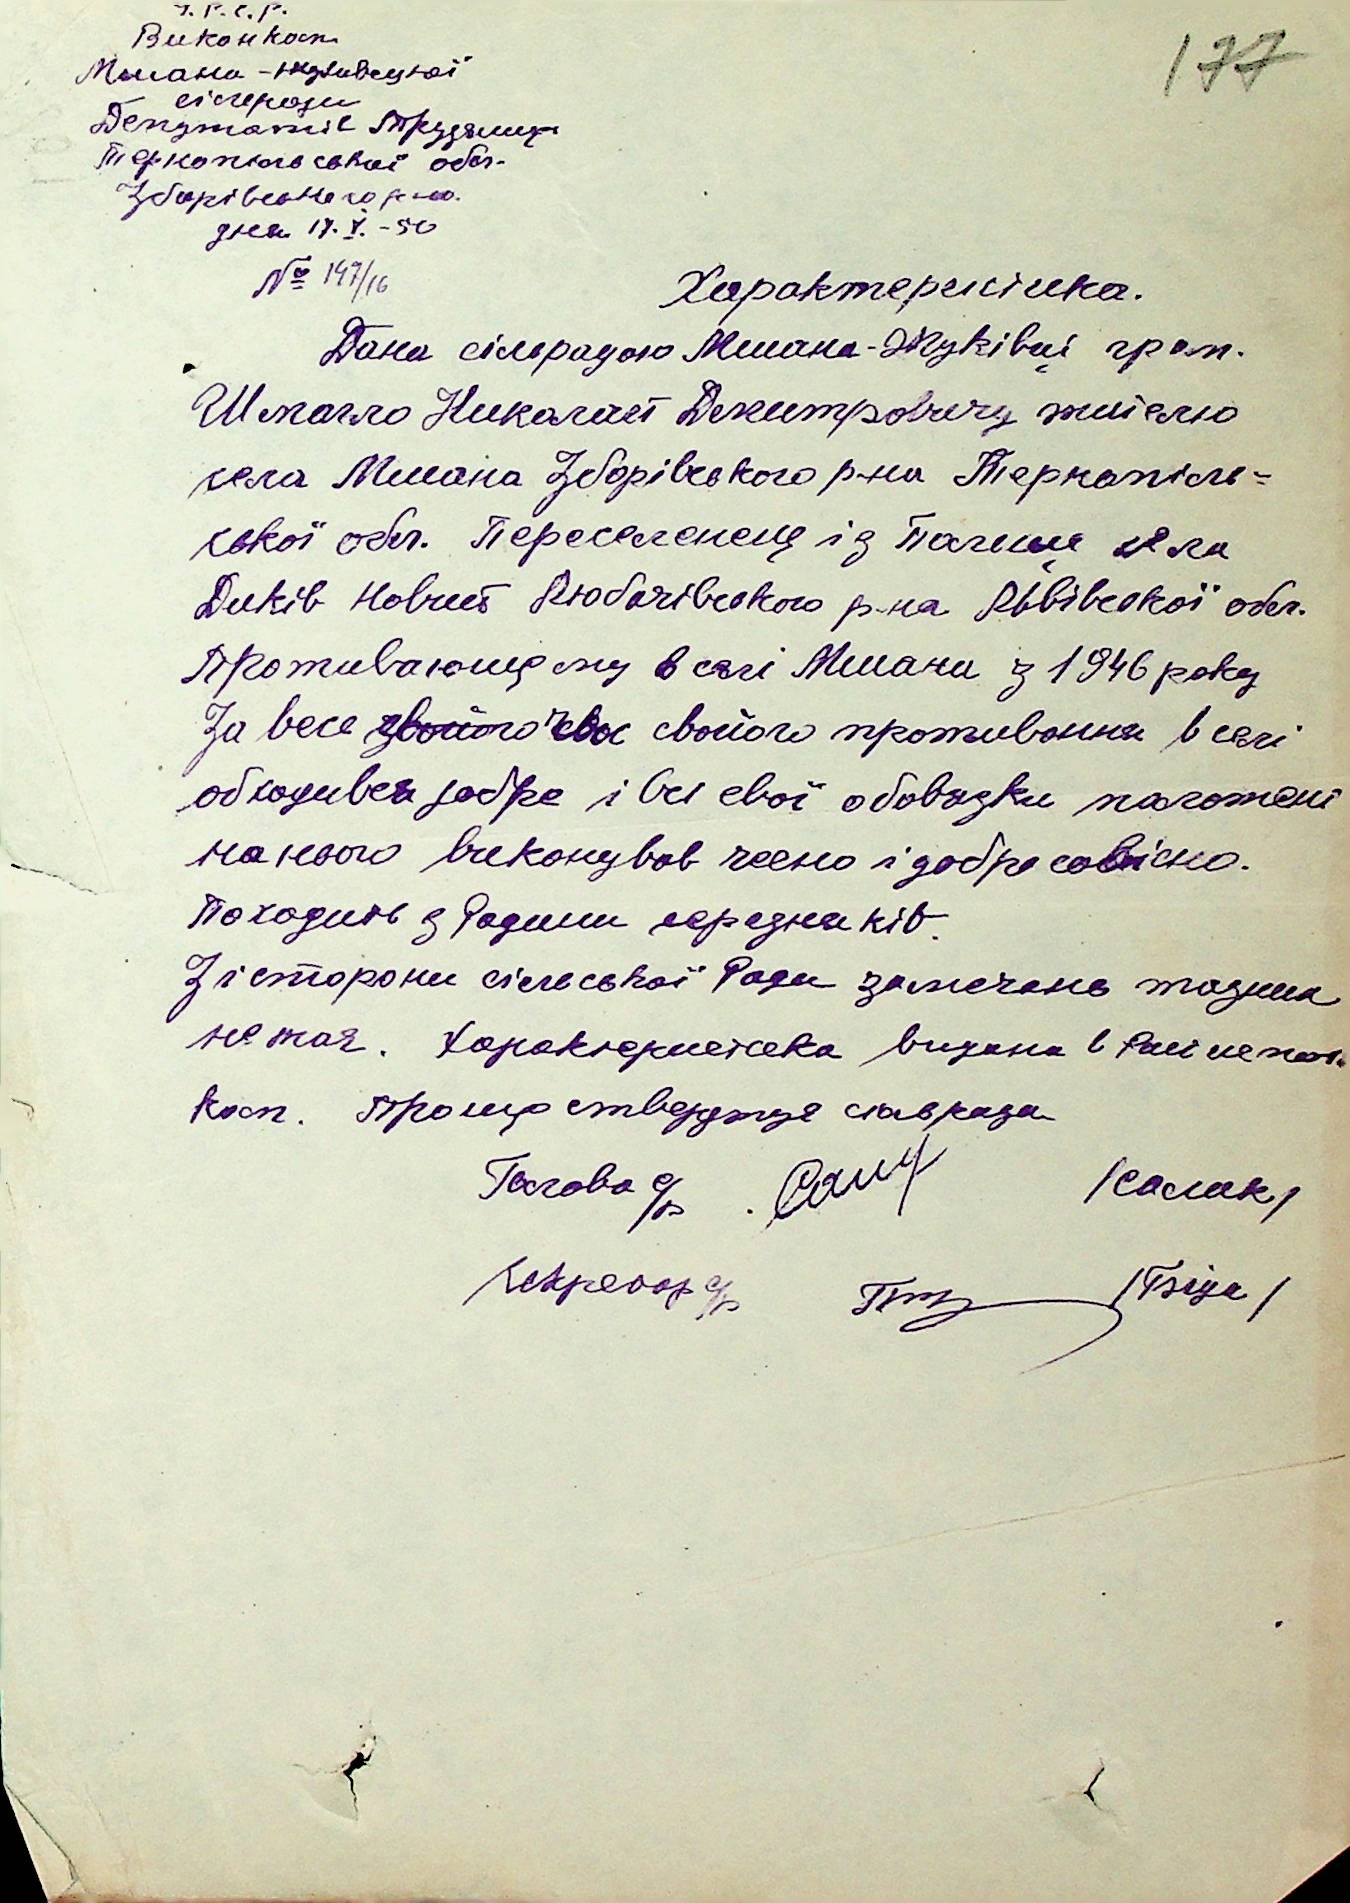 У.Р.С.Р.
177
Виконком
Млиана-Жуковецької
сільради
Депутатів Трудящих
Тернопільської обл.
Зборівського р-ну.
дня 17.V.-50
№ 147/16
Характеристика.
Дана сільрадою Млиана-Жуківці гром.
Шмагло Николай Дмитровичу жителю
села Млиана Зборівського р-на Тернопіль-
ської обл. Переселенец із Польщі села
Диків Новий Любачівського р-на Львівської обл.
Проживающему в селі Млиани з 1946 року
За весь свойого час свойого проживання в селі
обходився добре і всі свої обовязки положені
на нього виконував чесно і добре совісно.
Походить з Родини середняків.
Зі сторони сільської Ради замечань жадних
не має. Характеристика видана в Райисполь
ком. Про що стверджує сільрада
Голова с/р /Салак/
Секретар с/р